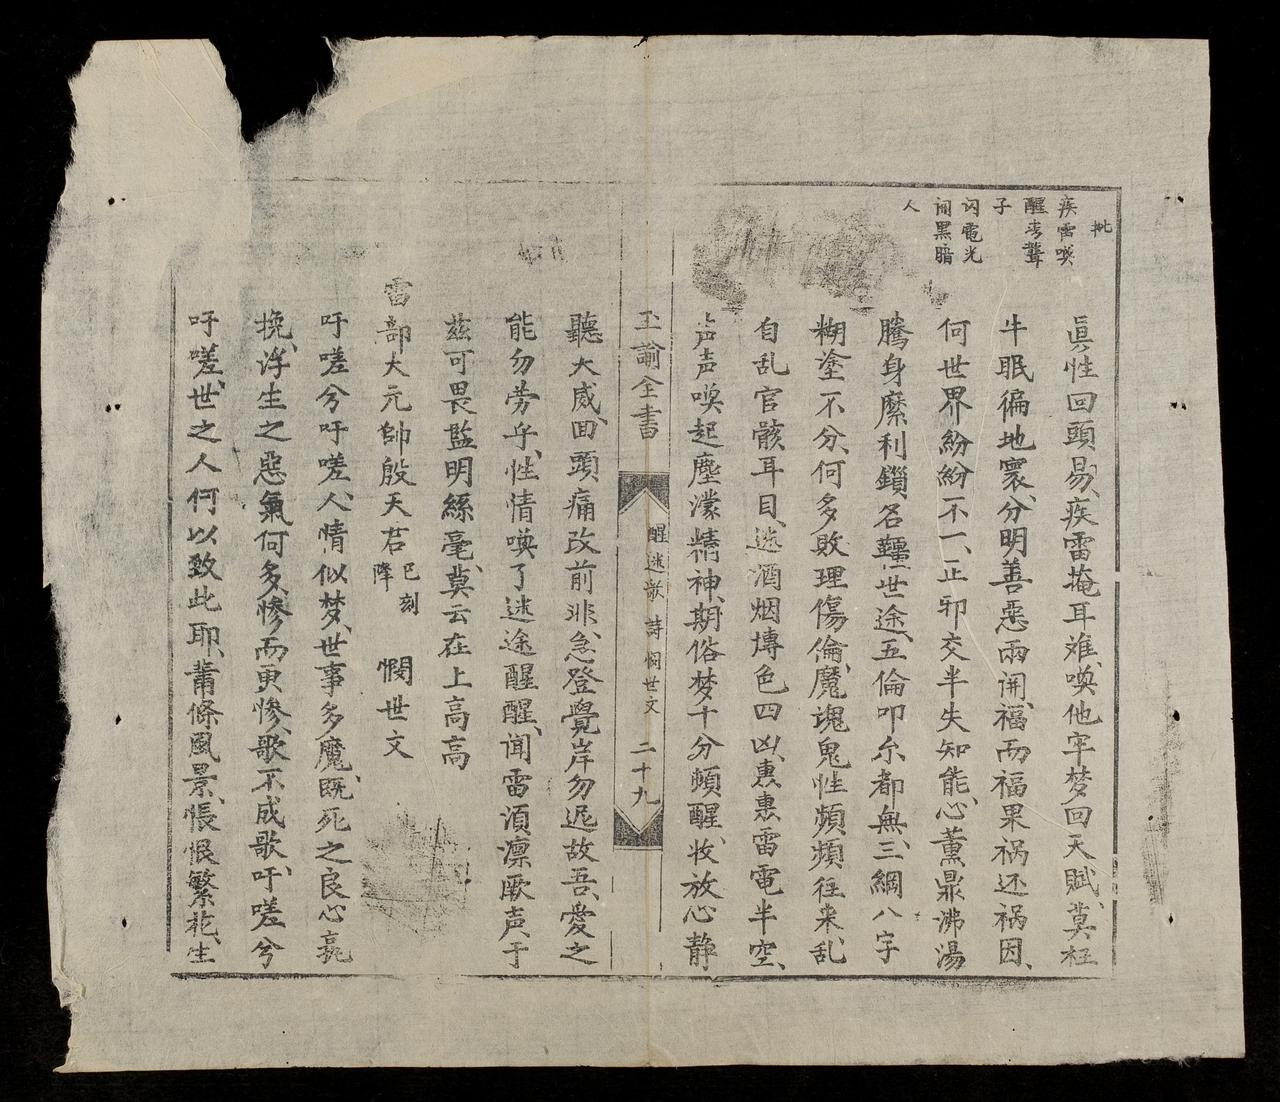 批
疾雷喚
醒青聾
子
闪電光
開黑暗
人
眞性回頭易、疾雷掩耳难、喚他牢梦回天賦、莫枉
牛眠徧地寰、分明善惡兩開、福而福果祸还祸因、
何世界紛紛不一、正邪交半失知能、心薰鼎沸湯
騰身縻利鎖名韁、世途、五倫叩尔都無、三綱八字
糊塗不分、何多敗理傷倫、魔魂鬼性頻頻往来乱
自乱官骸耳目、迷酒烟博色四凶、惠惠雷電半空、
声声喚起塵濛精神、期俗梦十分頻醒、收放心静
玉諭全書
醒迷歌 詩 憫世文
二十九
聽大威、回頭痛改前非、急登覺岸勿迟、故吾、愛之
能勿劳乎、性情喚了迷途醒醒、闻雷湏凛厥声、于
茲可畏監明絲毫、莫云在上高高
雷部大元帥殷天君巳刻降 憫世文
吁嗟兮吁嗟、人情似梦、世事多魔、既死之良心衰
挽、浮生之惡氣何多、惨而更惨、歌不成歌、吁嗟兮
吁嗟、世之人何以致此耶、蕭條風景、悵恨繁花、生